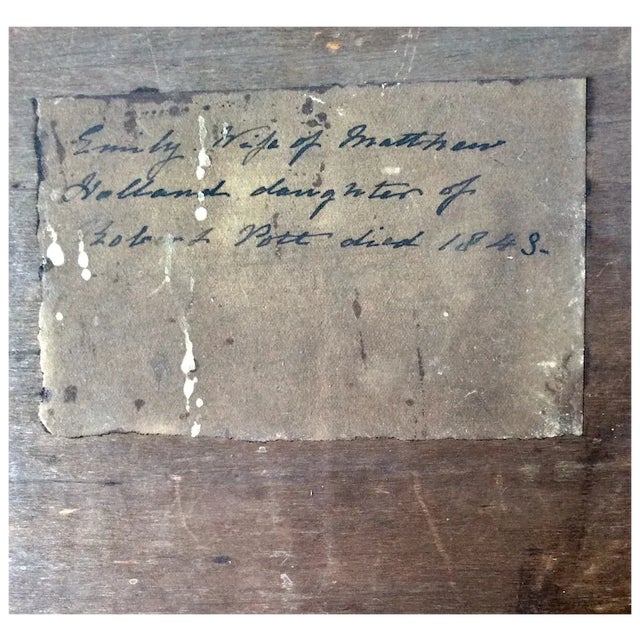 Emily Wife of Matthew
Holland daughter of
Robert Pott died 1843.